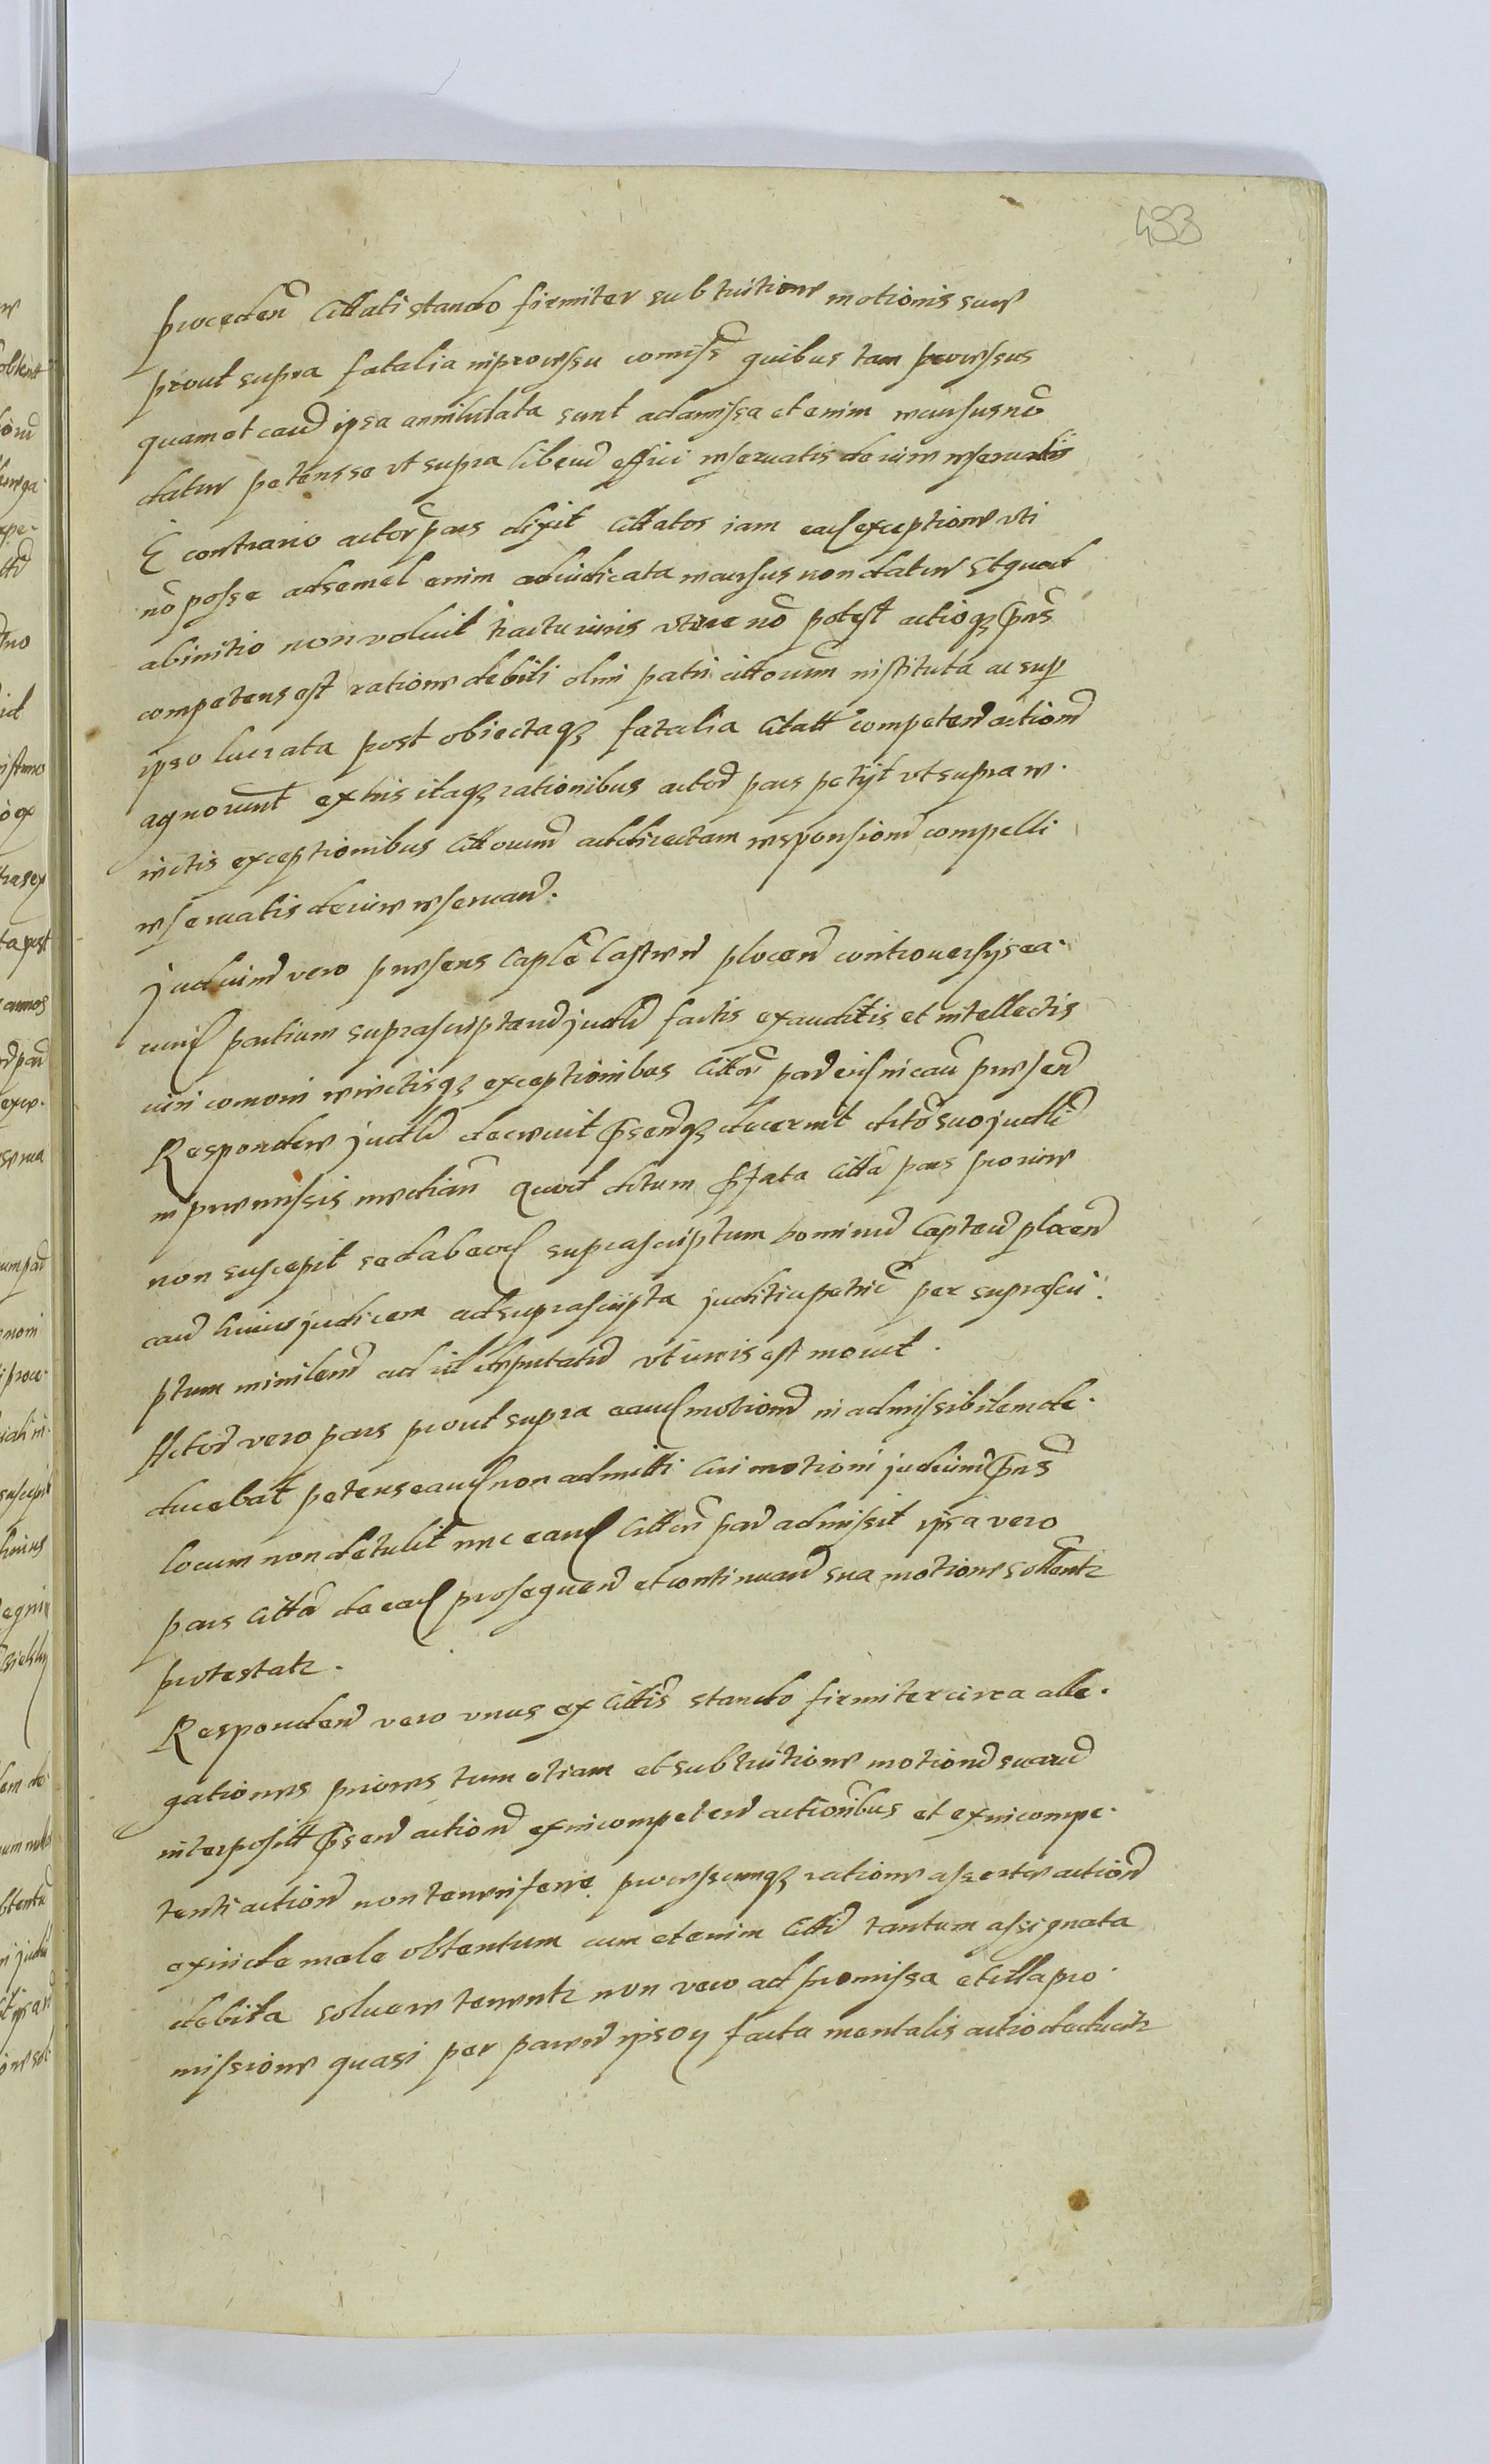 433
proceden̄ Cittati stando firmiter sub tuitione motionis suae
prout supra fatalia in processu comiss̄ quibus tam processus
quam et caus̄ ipsa annihilata sunt ad amissa etenim recursus nō
datur petens se vt supra liberū effici reseruatis de iure reseruatis
E contrario actor̄ pars dixit Cittatos iam ead exceptione vti
nō posse ad semel enim adiudicata recursus non datur Et quod
ab initio non voluit tractu iuris vtere nō potest actioq3 pn̄s
competens est ratione debiti olim patri cittorum instituta ac sup
ipso lucrata post obiectaq3 fatalia Citatt competen̄ action̄
agnorunt ex his itaq3 rationibus actor̄ pars petijt vt supra re.
iectis exceptionibus Cittorum ad directam responsionē compelli
reseruatis de iure reseruan̄.
Judicium vero praesens Caplē Castren̄ plocen̄ controuersijs ea.
rund partium suprascriptarū judlr̄ factis exauditis et intellectis
iuri comoni reiectisq3 exceptionibus Cittē par̄ eisd in caū praesen̄
Respondere judlr̄ decreuit Psen̄q3 decernit dctō suo judlī
in praemissis mediañ Quod dctum Pfata Cittā pars pro iure
non suscepit sed ab eod suprascriptum dominū Captrū plocen̄
caus̄ huius judicem ad suprascripta juditia petric̄ per suprascri.
ptum mimilem̄ ad id deputatū vt iuris est mouit.
Actor̄ vero pars prout supra eand motionē in admissibilem de.
ducebat petens eand non admitti Cui motioni judicium pn̄s
locum non detulit nec eand Cittē par̄ admisit ipsa vero
pars Cittā de ead prosequen̄ et continuan̄ sua motione sollentr
protestatr.
Responden̄ vero vnus ex Cittīs stando firmiter circa alle.
gationes priores tum etiam et sub tuitione motionū suarū
interposītt Psen̄ action̄ ex incompeten̄ actionibus et ex incompe.
tenti action̄ non tenen̄ ferre processumq3 ratione assertae action̄
exinde male obtentum cum etenim Cittī tantum assignata
debita soluere tenentr non vero ad promissa et illa pro.
missione quasi per paren̄ ipsor facta mentalis actio deducitr